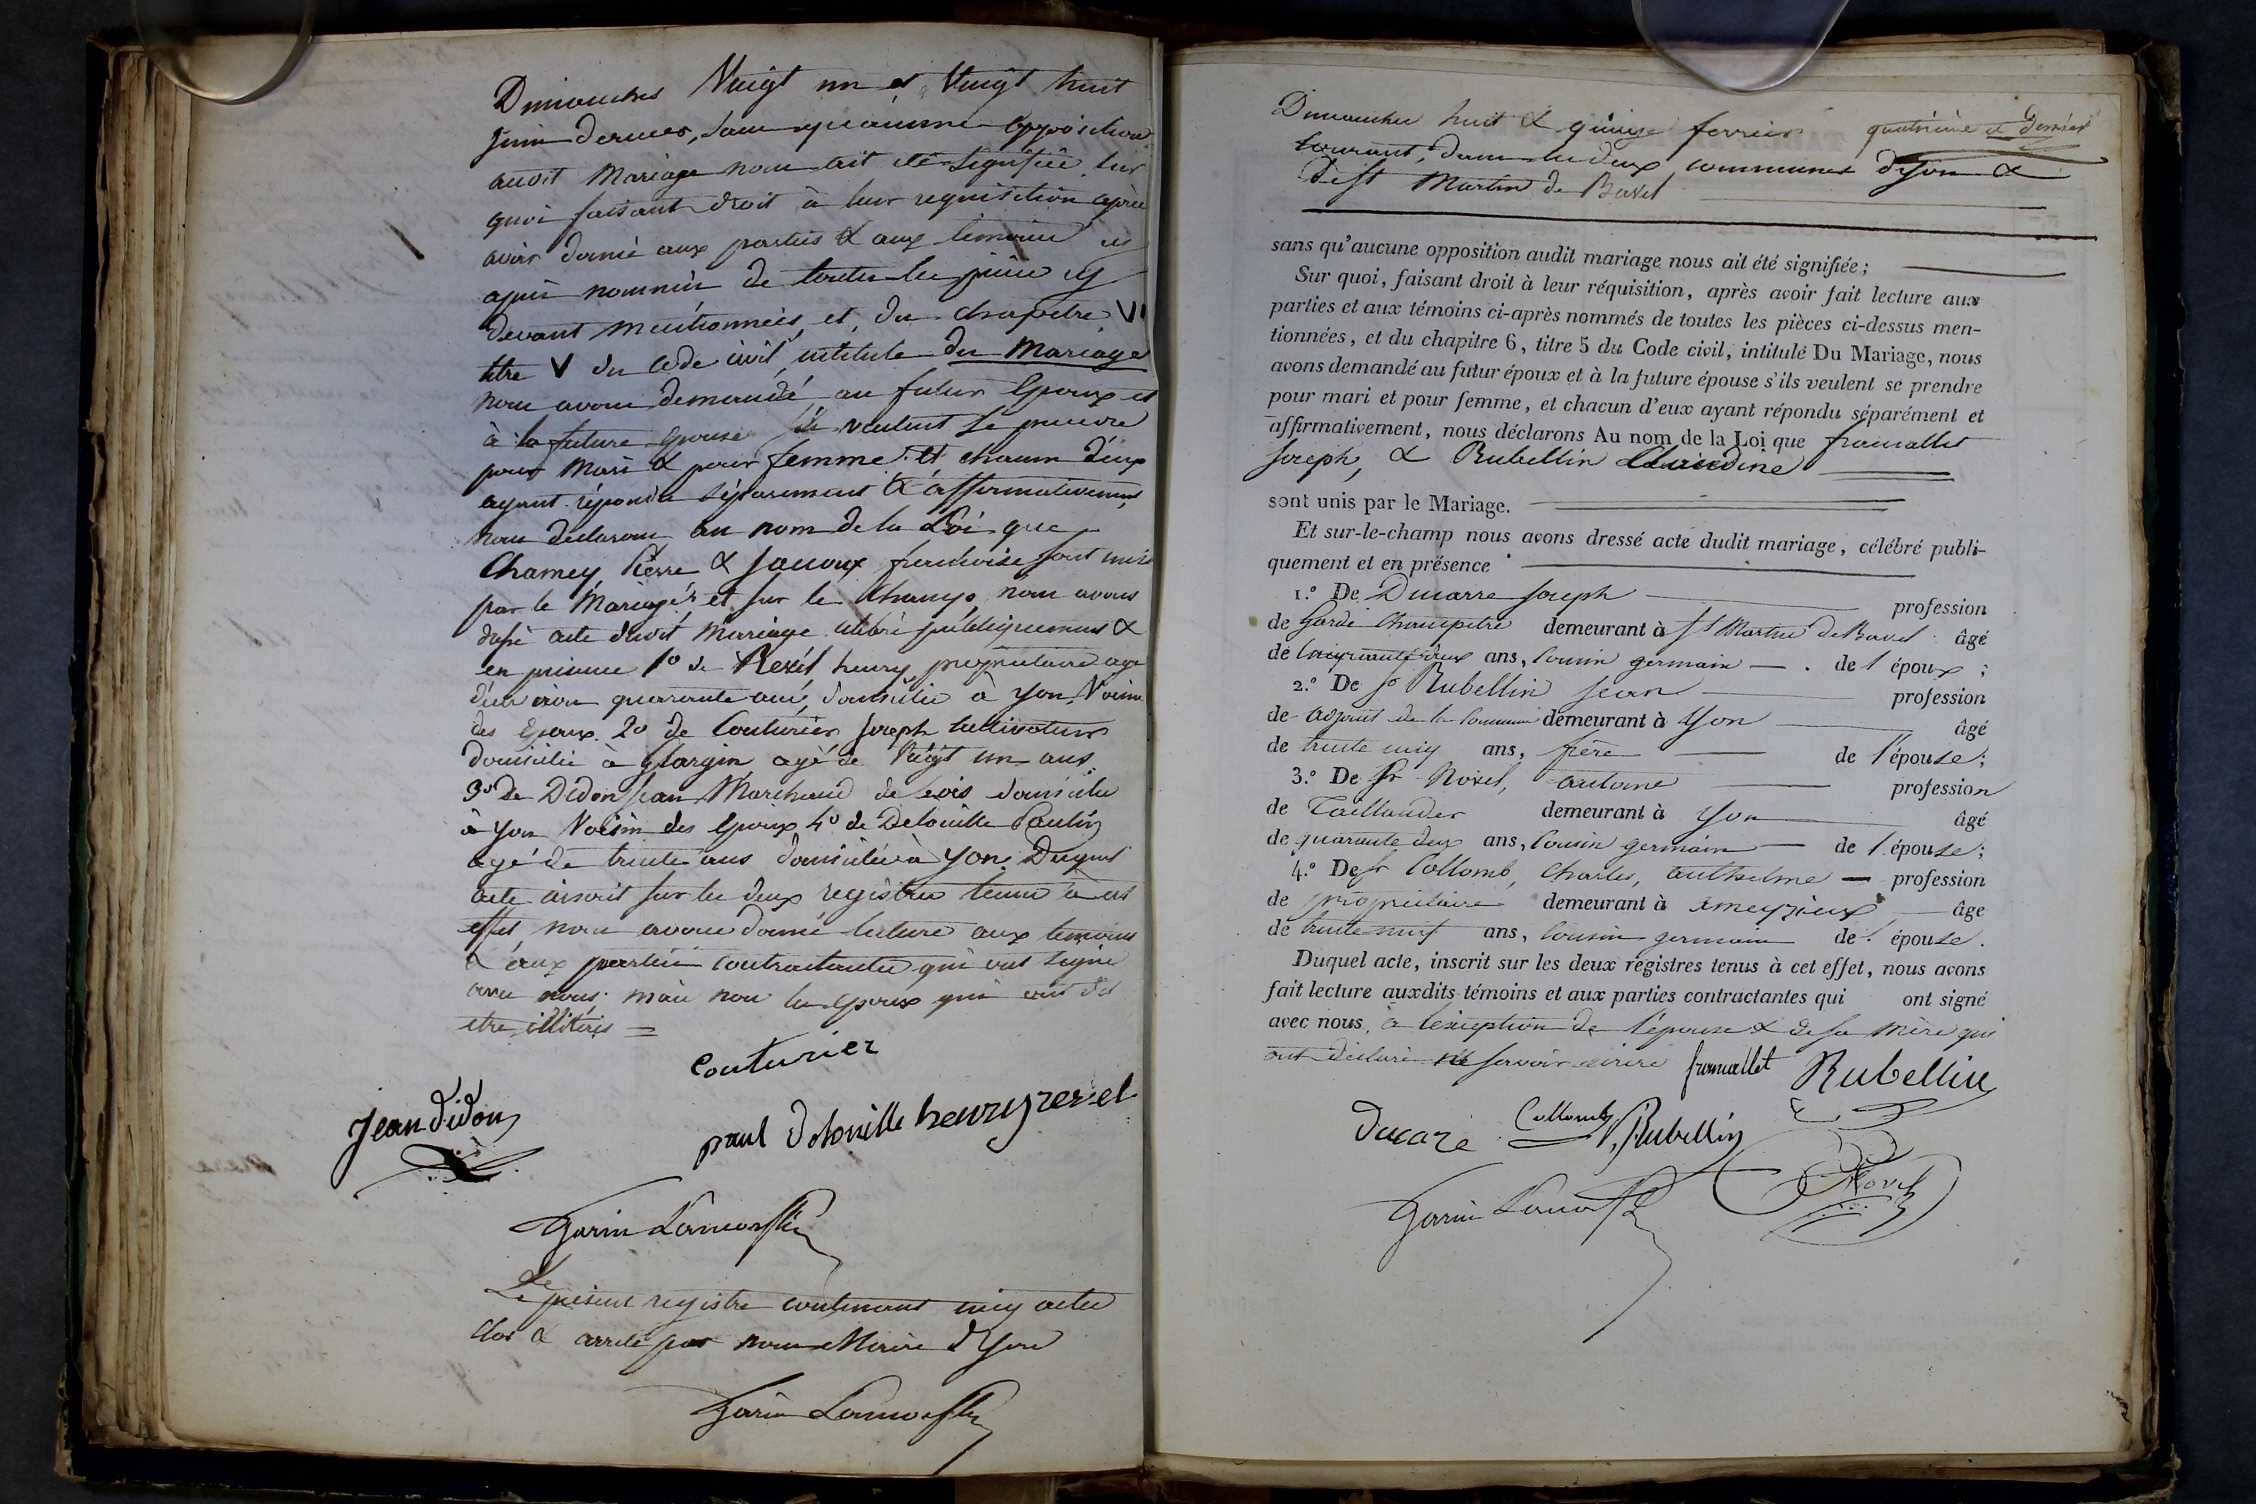 Dimanches Vingt un et Vingt huit
juin dernier, sans qu'aucune opposition
audit Mariage nous ait été signifiée, sur
quoi faisant droit à leur requisition après
avoir donné aux parties & aux témoins cy
après nommés de toutes les pièces cy
devant mentionnées, et, du chapitre VI
titre V du Code civil intitulé du Mariage
nous avons demandé au futur Epoux et
à la future Epouse s'ils veulent se prendre
pour Mari & pour femme. Et chacun d'eux
ayant répondu séparement & affirmativement,
nous déclarons au nom de la Loi que
Chamey Pierre & Jacoux francoise sont unis
par le Mariage, et sur le Champs nous avons
dressé acte dudit Mariage célébré publiquement &
en présence 1º de Rexel henry propriétaire agé
d'environ quarante ans, domicilié à yon Voisin
des Epoux. 2º de Couturier Joseph cultivateur
domicilié à flargin agé de Vingt un ans.
3º de Didon Jean Marchand de bois domicilié
à yon Voisin des Epoux 4º de Delouille Paulin
agé de trente ans domicilié à yon, Duquel
acte inscrit sur les deux registres tenus à cet
effet, nous avons donné lecture aux temoins
& aux parties contractantes qui ont signé
avec nous. mais non les Epoux qui ont dit
etre illitérés =
Couturier
jean didon
paul delouille henry rexel
Garin Lamorflan
Le présent registre contenant cinq actes
Clos & arreté par nous Maire d'yon
Garin Lamorflan
Dimanches huit & quinze fevrier
quatrième et dernier
courant, dans les deux communes d'yon &
de St Martin de Bavel
sans qu'aucune opposition audit mariage nous ait été signifiée;
Sur quoi, faisant droit à leur réquisition, après avoir fait lecture aux
parties et aux témoins ci-après nommés de toutes les pièces ci-dessus men-
tionnées, et du chapitre 6, titre 5 du Code civil, intitulé Du Mariage, nous
avons demandé au futur époux et à la future épouse s'ils veulent se prendre
pour mari et pour femme, et chacun d'eux ayant répondu séparément et
affirmativement, nous déclarons Au nom de la Loi que framallet
Joseph, & Rubellin Claudine
sont unis par le Mariage.
Et sur-le-champ nous avons dressé acte dudit mariage, célébré publi-
quement et en présence
1.º De Ducarre Joseph profession
de Garde Champetre demeurant à St Martin de Bavel âgé
de cinquante deux ans, cousin germain de l'époux;
2.º De Sr Rubellin Jean profession
de adjoint de la Commune demeurant à Yon âgé
de trente cinq ans, frère de l'épouse;
3.º De Sr Novel, antoine profession
de Taillandier demeurant à Yon âgé
de quarante deux ans, cousin germain de l'épouse;
4.º De Sr Collomb, Charles, anthelme profession
de propriétaire demeurant à ameyzieux âge
de trente neuf ans, cousin germain de l'épouse.
Duquel acte, inscrit sur les deux registres tenus à cet effet, nous avons
fait lecture auxdits témoins et aux parties contractantes qui ont signé
avec nous, à l'exception de l'épouse & de sa Mère qui
ont déclaré ne savoir écrire framallet Rubellin
Ducare Collomb Rubellin
Novel
Garin Lamorflan